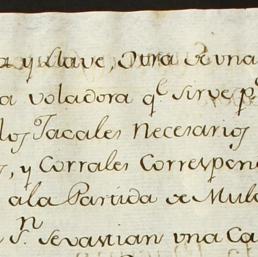 a y Llave, Otra de una
a voladora q.^l sirve p.^
los Jacales Necesarios
, y Corrales Correspen
ala Partida de Mul
S.^n Sevastian una Ca